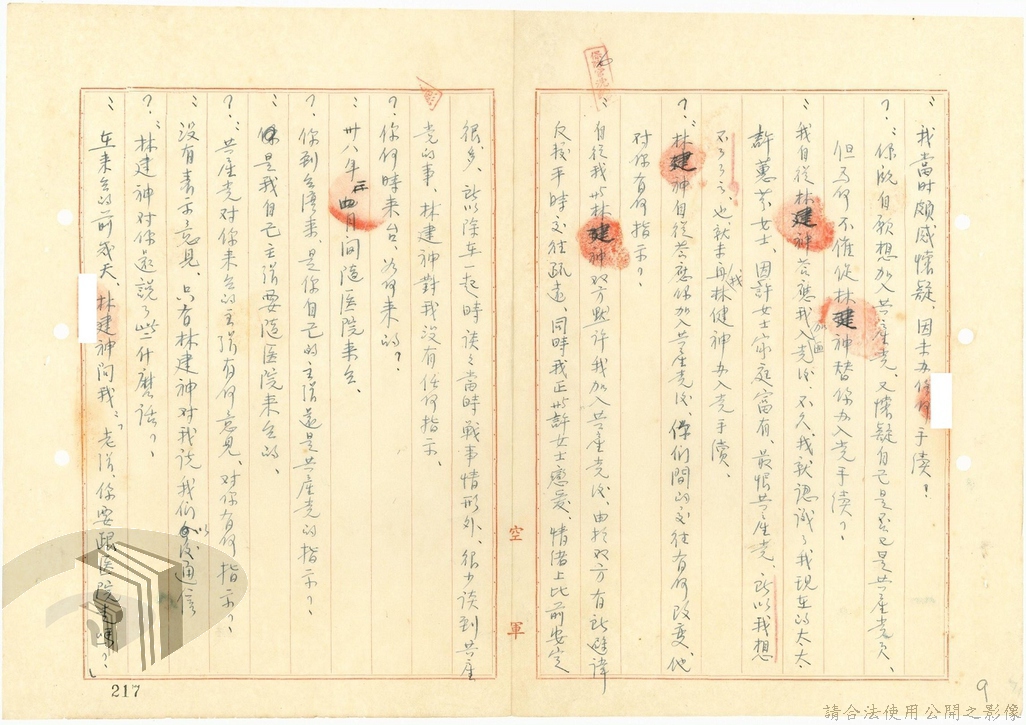 ：我當时頗感懷疑、因未办任何手续？
？：你既自願想加入共產党、又懷疑自己是否已是共產党員、
但为何不催促林建神替你办入党手续？
：我自從林建神荅應我加入党後、不久、我就認識了我現在的太太
許蕙芬女士、因許女士家庭富有、最恨共產党、所以我想
不了了之、也就未再林健神办入党手續、
？：林建神自從荅應你加入共產党後、你们間的交往有何改变、他
对你有何指示？
：自從我与林建神双方默許我加入共產党後、由於双方有所避諱
反较平時交往疏遠、同時我正与許女士戀爱、情绪上比前安定
很多、所以除在一起時談談當時戰事情形外、很少谈到共產
党的事、林建神對我没有任何指示、
？：你何時来台、为何来的？
：卅八年三四月间隨医院来台、
？：你到台湾来、是你自己的主張還是共產党的指示？
：是我自己主張要隨医院来台的、
？：共產党对你来台的主張有何意見、对你有何指示？
：没有表示意見、只有林建神对我说我们以後通信
？：林建神对你還説了些什麼话？
：在来台的前幾天、林建神问我：老張、你要跟医院走吗？
空軍
217
9
請合法使用公開之影像